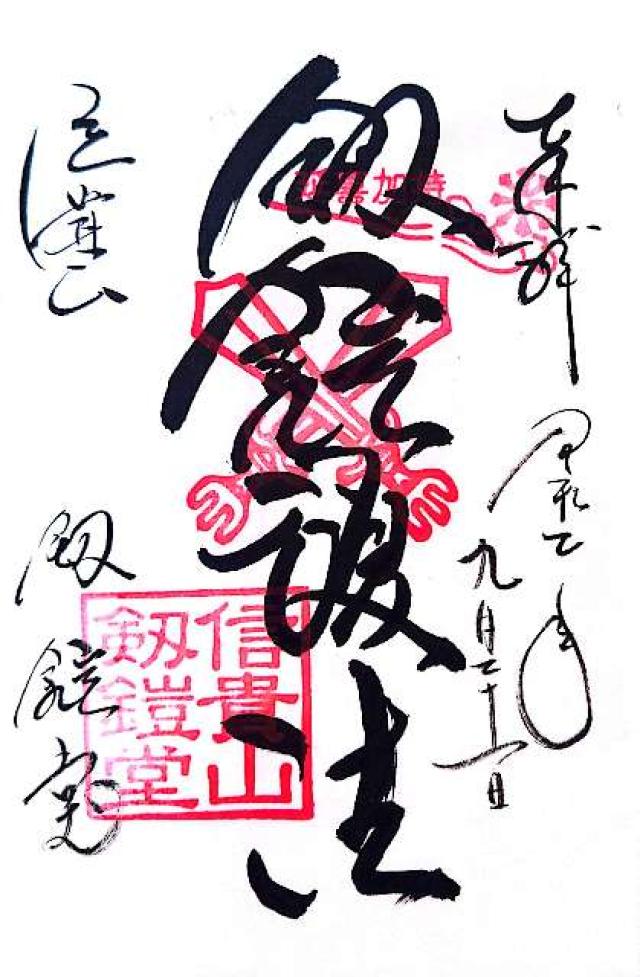 奉拝
令和二年
九月二十一日
延喜加持
劔鎧護法
信貴山
劔鎧堂
信貴山
劔鎧堂